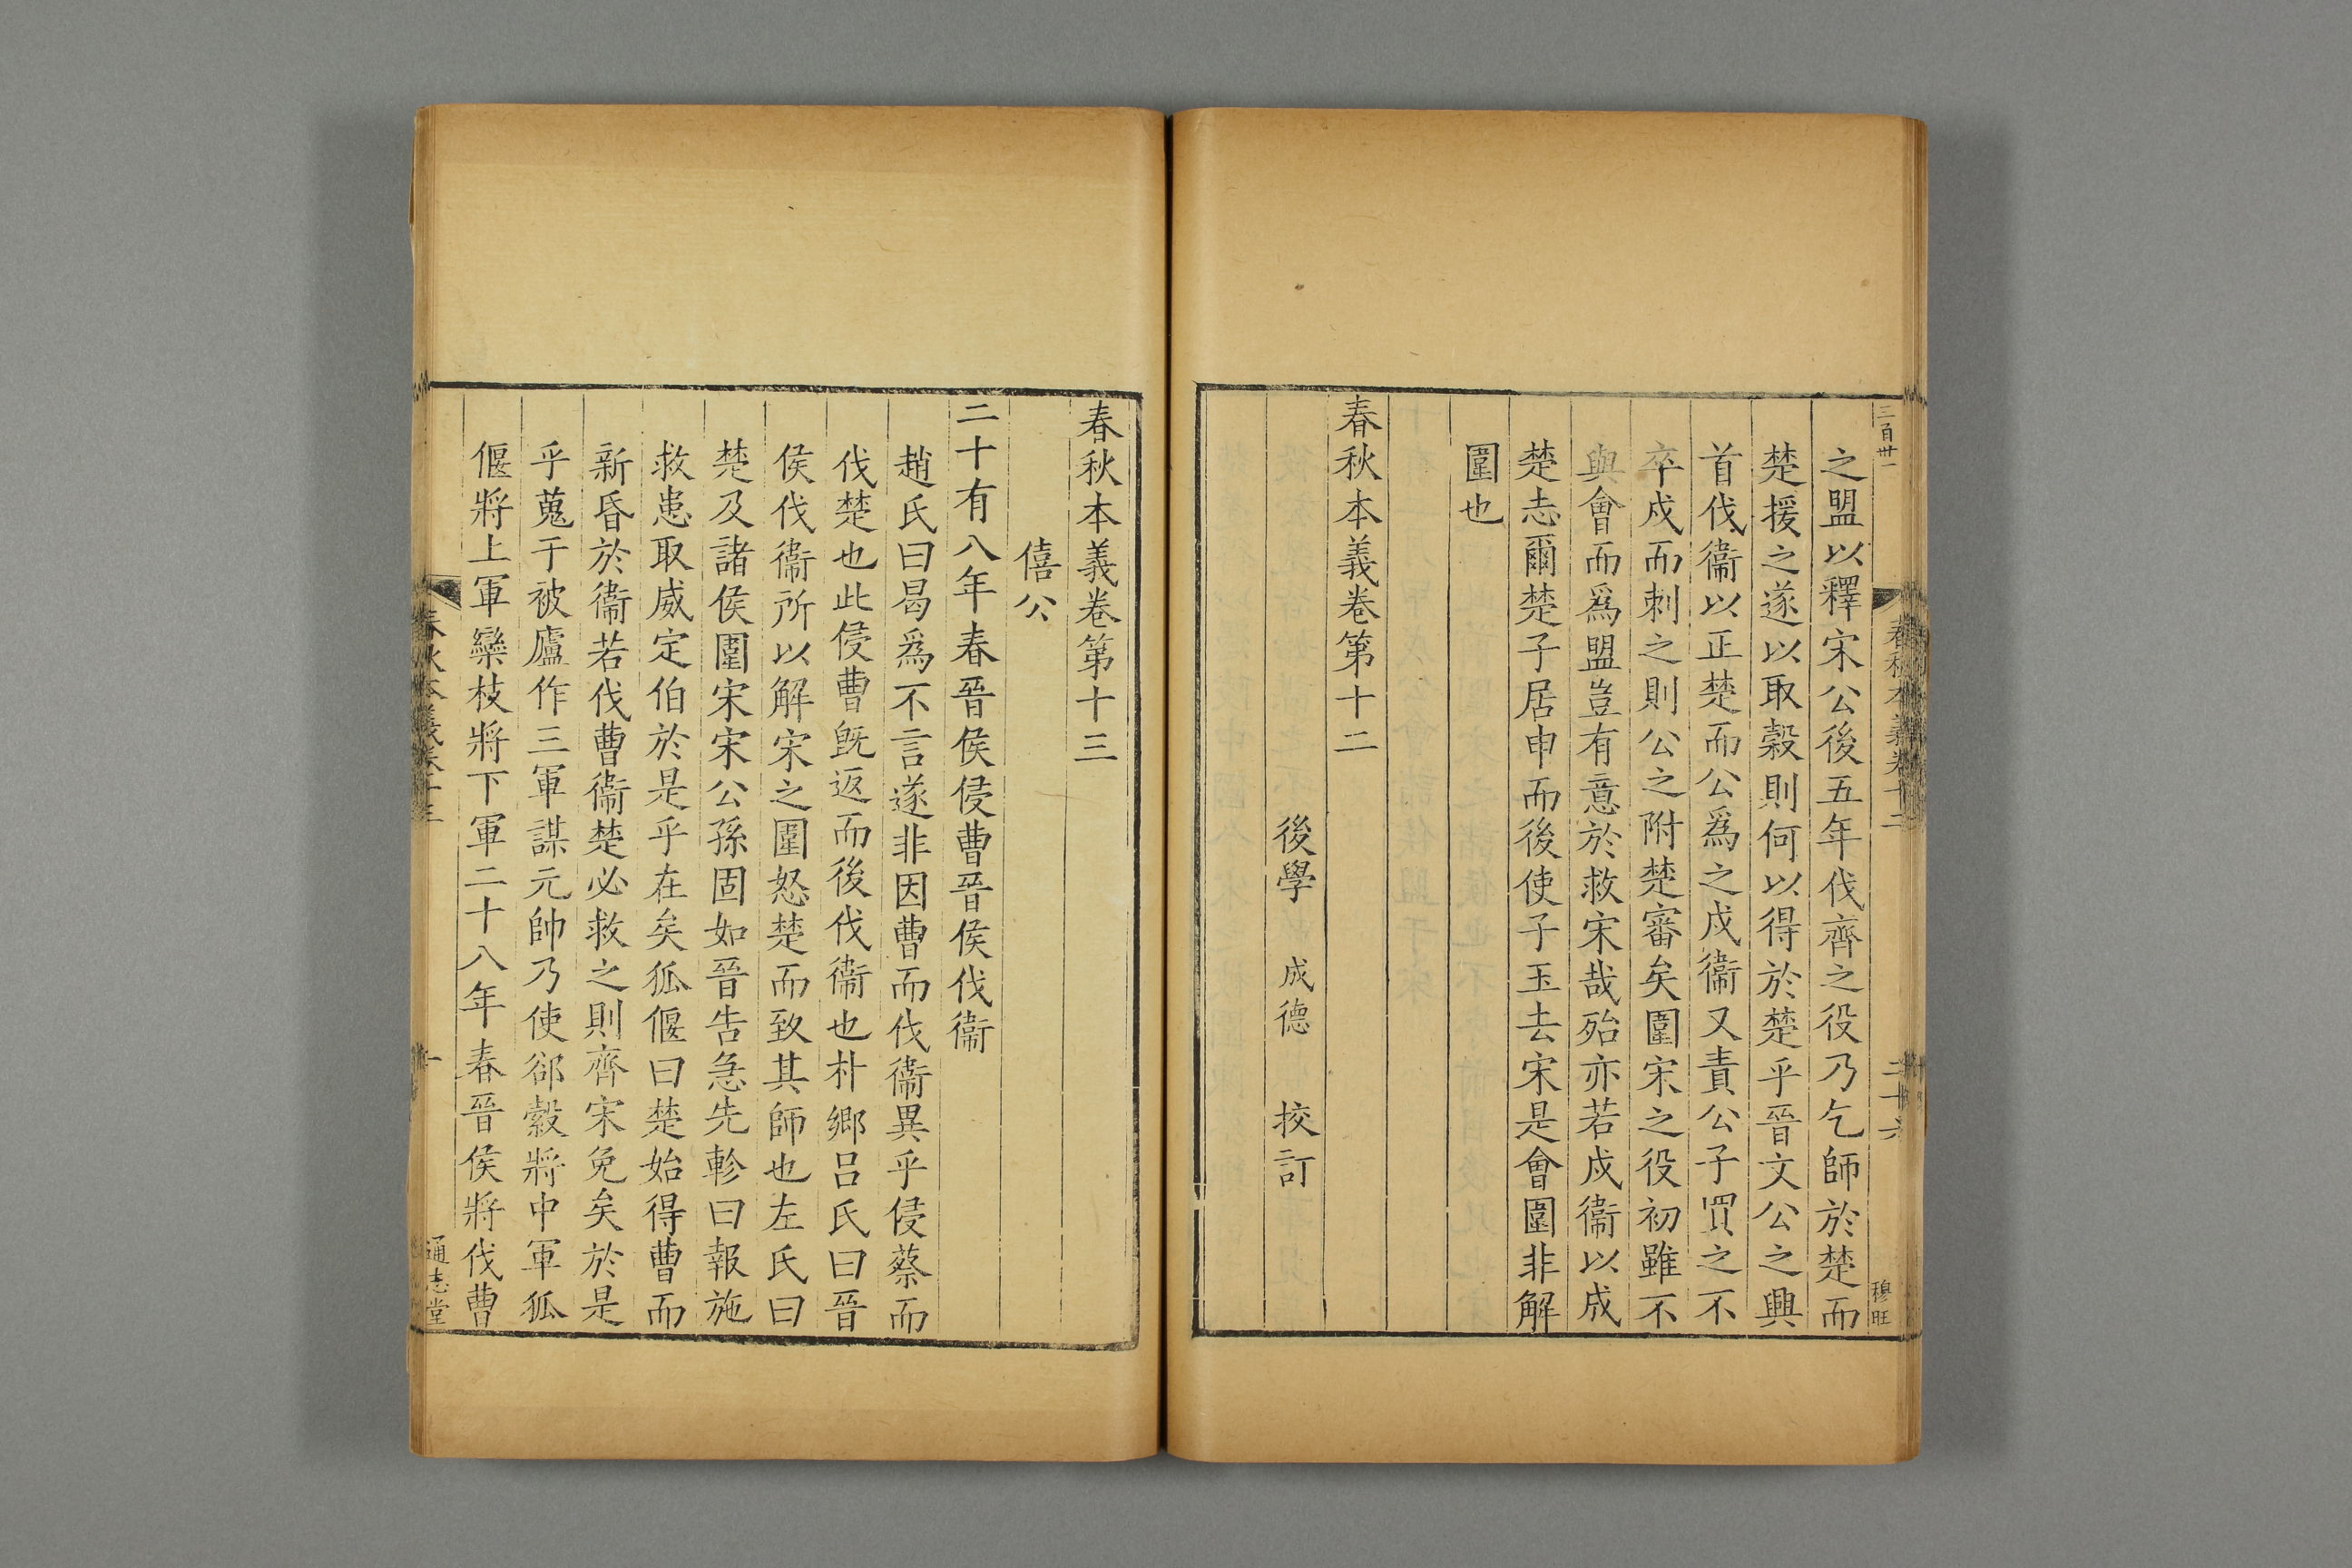 三百卅一
春秋本義卷十二
二十六
穆旺
之盟以釋宋公後五年伐齊之役乃乞師於楚而
楚援之遂以取穀則何以得於楚乎晉文公之興
首伐衞以正楚而公爲之戍衞又責公子買之不
卒戍而刺之則公之附楚審矣圍宋之役初雖不
與會而爲盟豈有意於救宋哉殆亦若戍衞以成
楚志爾楚子居申而後使子玉去宋是會圍非解
圍也
春秋本義卷第十二
後學 成德 挍訂
春秋本義卷第十三
僖公
二十有八年春晉侯侵曹晉侯伐衞
趙氏曰曷爲不言遂非因曹而伐衞異乎侵蔡而
伐楚也此侵曹旣返而後伐衞也朴鄉呂氏曰晉
侯伐衞所以解宋之圍怒楚而致其師也左氏曰
楚及諸侯圍宋宋公孫固如晉告急先軫曰報施
救患取威定伯於是乎在矣狐偃曰楚始得曹而
新昏於衞若伐曹衞楚必救之則齊宋免矣於是
乎蒐于被廬作三軍謀元帥乃使郤縠將中軍狐
偃將上軍欒枝將下軍二十八年春晉侯將伐曹
春秋本義卷十三
一
通志堂